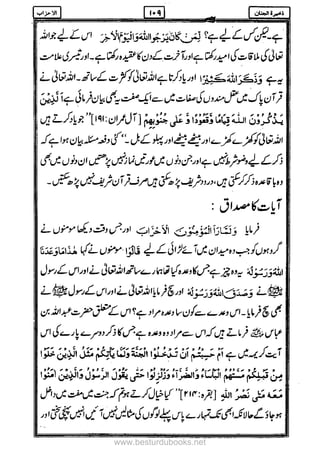 ذخیرۃ الجنان ۱۰۹ الاحزاب
ہے۔ لیکن کس کے لیے ہے؟ لِّمَنْ كَانَ يَرْجُوا اللهَ وَالْيَوْمَ الْاٰخِرَ اس کے لیے جو اللہ
تعالیٰ کی ملاقات کی امید رکھتا ہے اور آخرت کے دن کا عقیدہ رکھتا ہے۔ اور تیسری علامت
یہ ہے وَذَكَرَ اللهَ كَثِيْرًا اور یاد کرتا ہے اللہ تعالیٰ کو کثرت کے ساتھ۔ اللہ تعالیٰ نے
قرآن پاک میں عقل مندوں کی صفات میں سے ایک صفت یہ بھی بیان فرمائی ہے الَّذِيْنَ
يَذْكُرُوْنَ اللهَ قِيَامًا وَّقُعُوْدًا وَّ عَلٰى جُنُوْبِهِمْ [آل عمران: ۱۹۱] "جو یاد کرتے ہیں
اللہ تعالیٰ کو کھڑے کھڑے اور بیٹھے بیٹھے اور پہلو کے بل۔" کئی دفعہ مسئلہ بیان ہوا ہے کہ
ذکر کے لیے وضو شرط نہیں ہے اور جن دنوں میں عورتیں نماز نہیں پڑھتیں ان دنوں میں بھی
وہ باقاعدہ ذکر کر سکتی ہیں، درود شریف پڑھ سکتی ہیں صرف قرآن شریف نہیں پڑھ سکتیں۔
آیات کا مصداق :
فرمایا وَلَمَّا رَاَ الْمُؤْمِنُوْنَ الْاَحْزَابَ اور جس وقت دیکھا مومنوں نے
گروہوں کو جب وہ میدان میں آئے لڑائی کے لیے قَالُوْا مومنوں نے کہا هٰذَا مَا وَعَدَنَا
اللهُ وَرَسُوْلُهٗ یہ وہ چیز ہے جس کا وعدہ کیا تھا ہمارے ساتھ اللہ تعالیٰ نے اور اس کے رسول
ﷺ نے وَصَدَقَ اللهُ وَرَسُوْلُهٗ اور سچ فرمایا اللہ تعالیٰ نے اور اس کے رسول ﷺ نے
بھی سچ فرمایا۔ اس وعدے سے کون سا وعدہ مراد ہے؟ اس کے متعلق حضرت عبداللہ بن
عباس فرماتے ہیں کہ اس سے مراد وہ وعدہ ہے جس کا ذکر دوسرے پارے کی اس
آیت کریمہ میں ہے اَمْ حَسِبْتُمْ اَنْ تَدْخُلُوا الْجَنَّةَ وَلَمَّا يَاْتِكُمْ مَّثَلُ الَّذِيْنَ خَلَوْا
مِنْ قَبْلِكُمْ مَسَّتْهُمُ الْبَاْسَآءُ وَالضَّرَّآءُ وَزُلْزِلُوْا حَتّٰى يَقُوْلَ الرَّسُوْلُ وَالَّذِيْنَ اٰمَنُوْا
مَعَهٗ مَتٰى نَصْرُ اللهِ [بقرہ: ۲۱۴] "کیا خیال کرتے ہو تم کہ جنت میں مفت میں داخل
ہو جاؤ گے حالانکہ ابھی تک تمہارے پاس پہلے لوگوں کی مثالیں نہیں آئیں انہیں پہنچی سختی اور
www.besturdubooks.net